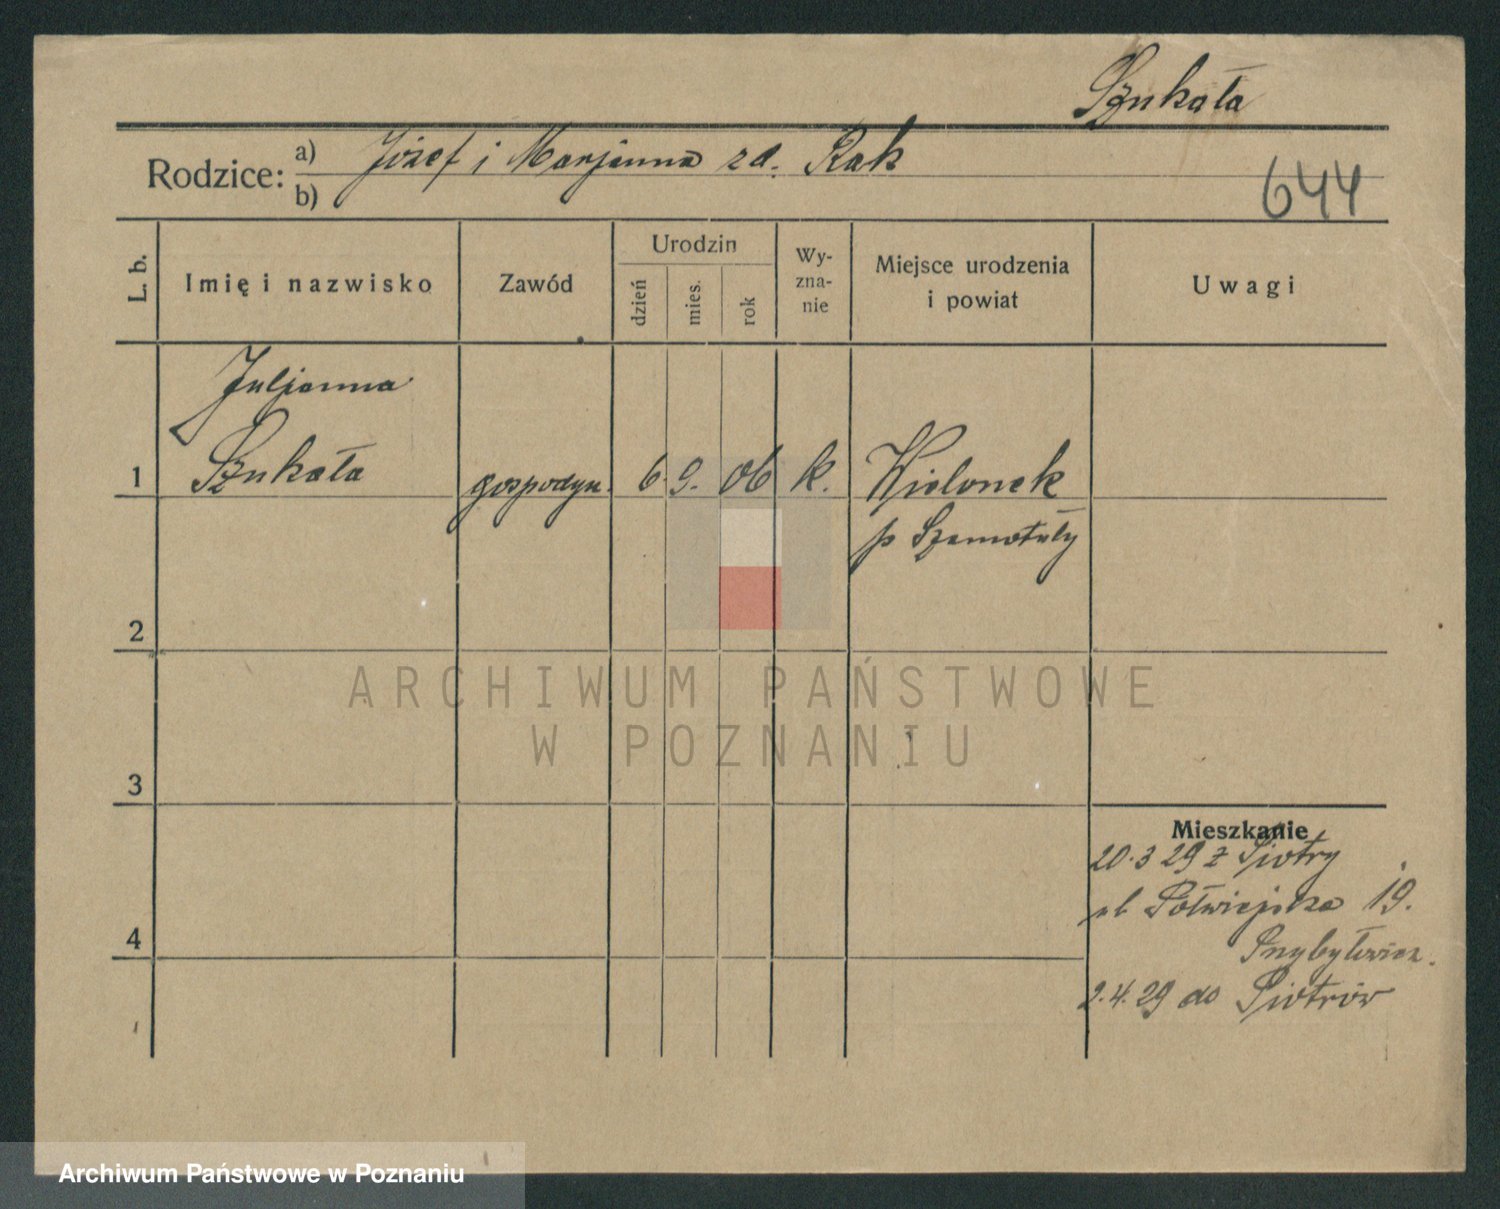 Szukała
Rodzice: a) Józef i Marjanna zd. Rak
b)
644
L. b.
Imię i nazwisko
Zawód
Urodzin
dzień
mies.
rok
Wy-
zna-
nie
Miejsce urodzenia
i powiat
Uwagi
Juljanna
1 Szukała gospodyn. 6. 9. 06 k. Wielonek
p Szamotuły
2
ARCHIWUM PAŃSTWOWE
W POZNANIU
3
Mieszkanie
20.3 29 z Piotry
ul Półwiejska 19.
4
Przybyłowicz.
2.4.29 do Piotrów
Archiwum Państwowe w Poznaniu